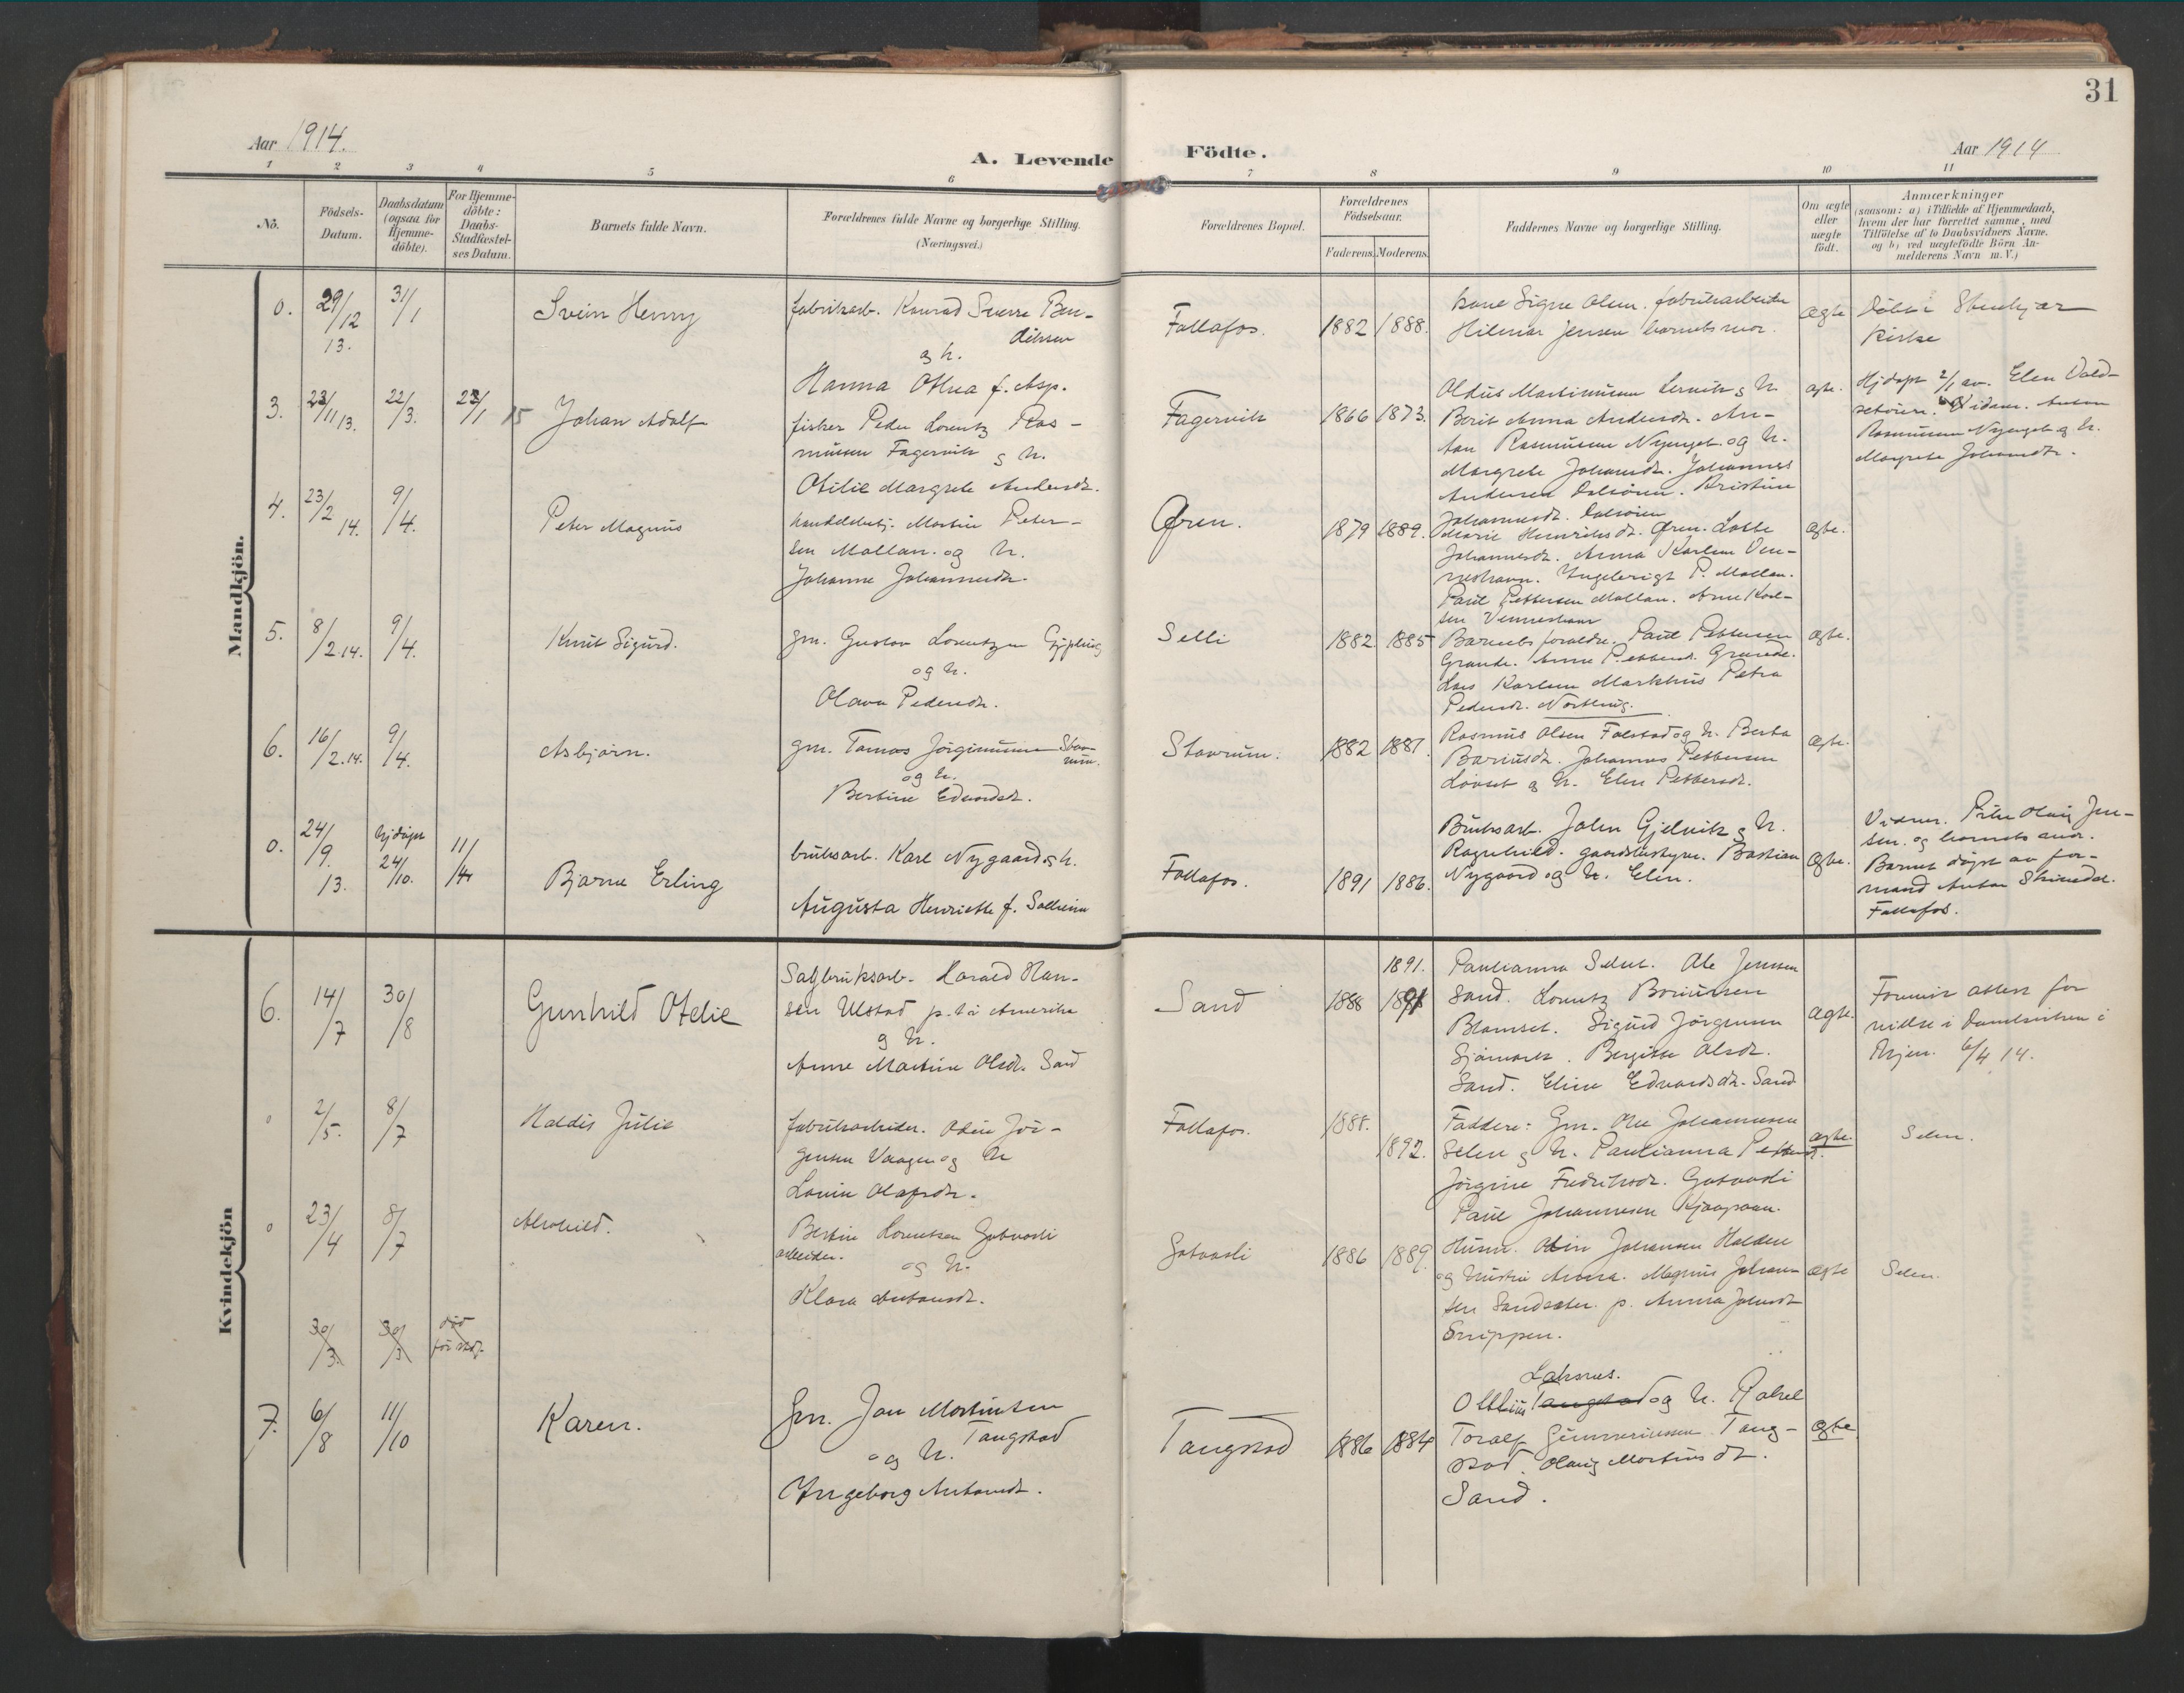 31
Aar 1914.
A. Levende Födte.
Aar 1914
1 2 3 4 5 6 7 8 9 10 11
No.
Födsels-
Datum.
Daabsdatum
(ogsaa for
Hjemme-
döbte).
For Hjemme-
döbte:
Daabs-
Stadfæstel-
ses Datum.
Barnets fulde Navn.
Forældrenes fulde Navne og borgerlige Stilling.
(Næringsvei.)
Forældrenes Bopæl.
Forældrenes
Födselsaar.
Faderens. Moderens.
Faddernes Navne og borgerlige Stilling.
Om ægte
eller
uægte
födt.
Anmærkninger
(saasom: a) i Tilfælde af Hjemmedaab,
hvem der har forrettet samme, med
Tilföielse af to Daabsvidners Navne.
og b) ved uægtefödte Börn An-
melderens Navn m. V.)
Mandkjön.
0.
29/12
13.
31/1
Svein Henny
fabrikarb. Konrad Sverre Ben-
diksen
og h.
Hanna Othea f. Asp.
Follafos.
1882 1888.
Kone Signe Olsen. fabrikarbeider
Hilmar Jensen barnets mor.
ægte
Döbt i Stenkjær
Kirke
3.
23/11 13.
22/3.
23/1 15
Johan Adolf
fisker Peder Lorentz Ras-
mussen Fagervik og h.
Otilie Margrete Andersdt.
Fagervik
1866 1873.
Oldus Martinussen Lervik og h.
Berit Anna Andersdt. An-
ton Rasmussen Nyenget og h.
Margrete Johansdt. Johannes
Andersen Dalsören. Kristine
Johannesdt. Dalsören
ægte.
Hjdöpt 2/1 av. Elen Dald-
Vidner. Anton
Rasmussen Nyenget og h.
Margrete Johansdt.
4.
23/2 14.
9/4.
Peter Magnus
handelsbetj. Martin Peter-
sen Mollan. og h.
Johanne Johannesdt.
Øren.
1879 1889.
Marie Henriksdt. Øren. Lotte
Johannesdt. Anna Karlsen Ven-
neshavn. Ingebrigt P. Mollan.
Paul Pettersen Mollan. Arne Karl-
sen Venneshavn
ægte.
5.
8/2.14.
9/4.
Knut Sigurd.
gm. Gustav Lorentzen
og h.
Olava Pedersdt.
Selli
1882. 1885
Barnets foreldre. Paul Pettersen
Grande. Anne Pettersdt. Grande.
Lars Karlsen Markhus Petra
Pedersdt.
ægte.
6.
16/2.14.
9/4.
Asbjörn.
gm. Tomas Jörginussen Stav-
rum.
og h.
Bertine Edvardsdt.
Stavrum.
1882 1887.
Rasmus Olsen Folstad og h. Berta
Bariusdt. Johannes Pettersen
Lövset og h. Elen Pettersdt.
ægte.
0.
24/9.
13.
hjdöpt
24/10.
11/4
Bjarne Erling
bruksarb. Karl Nygaard og h.
Augusta Henriette f. Solheim
Follafos.
1891 1886.
Bruksarb. John Gjelvik og h.
Ragnhild. gaardsbestyrer. Bastian
Nygaard og h. Elen.
ægte.
Vidner. Peter Olaus Jen-
sen. og barnets mor.
Barnet döpt av for-
mand Anton
Follafos.
Kvindekjön
6.
14/7
30/8
Gunhild Otelie
Sagbruksarb. Harald Han-
sen Ulstad p. t. i Amerika
og h.
Anne Martine Olsdt. Sand
Sand
1888 1891
1891.
Paulianna Selnes. Ole Jensen
Sand. Lorentz Bariussen
Blomset. Sigurd Jörgensen
Sjömark. Bergitte Olsdt.
Sand. Eline Edvardsdt. Sand
ægte.
Foreviser attest for
vielse i
6/4 14.
0
2/5.
8/7
Haldis Julie
fabrikarbeider. Odin Jör-
gensen Vaagen og h
Lovise Olafsdt.
Follafos.
1888.
1892.
Faddere: Gm. Ole Johannesen
Selen og h. Paulianna Pettersdt.
Jörgine Fredriksdt. Gotvasli
Paul Johannesen
ægte.
Selen.
0
23/4
8/7
Alvhild.
Bertin Lorentsen Gotvasli
arbeider.
og h.
Klara Antonsdt.
Gotvasli
1886 1889.
Husm. Odin Johansen Halden
og hustru Anna. Magnus Johan-
sen Sandseter. p. Anna Johansdt
Snippen.
ægte
Selen.
30/3.
30/3
död
för daab.
7.
6/8
11/10
Karen.
Gm. Jon Martinsen
Tangstad
og h.
Ingeborg Antonsdt.
Tangstad
1886 1884
Laksnes.
Ottelius Tangstad og h. Rakel
Toralf Gunneriussen Tang-
stad. Olaug Martinsdt.
Sand.
ægte